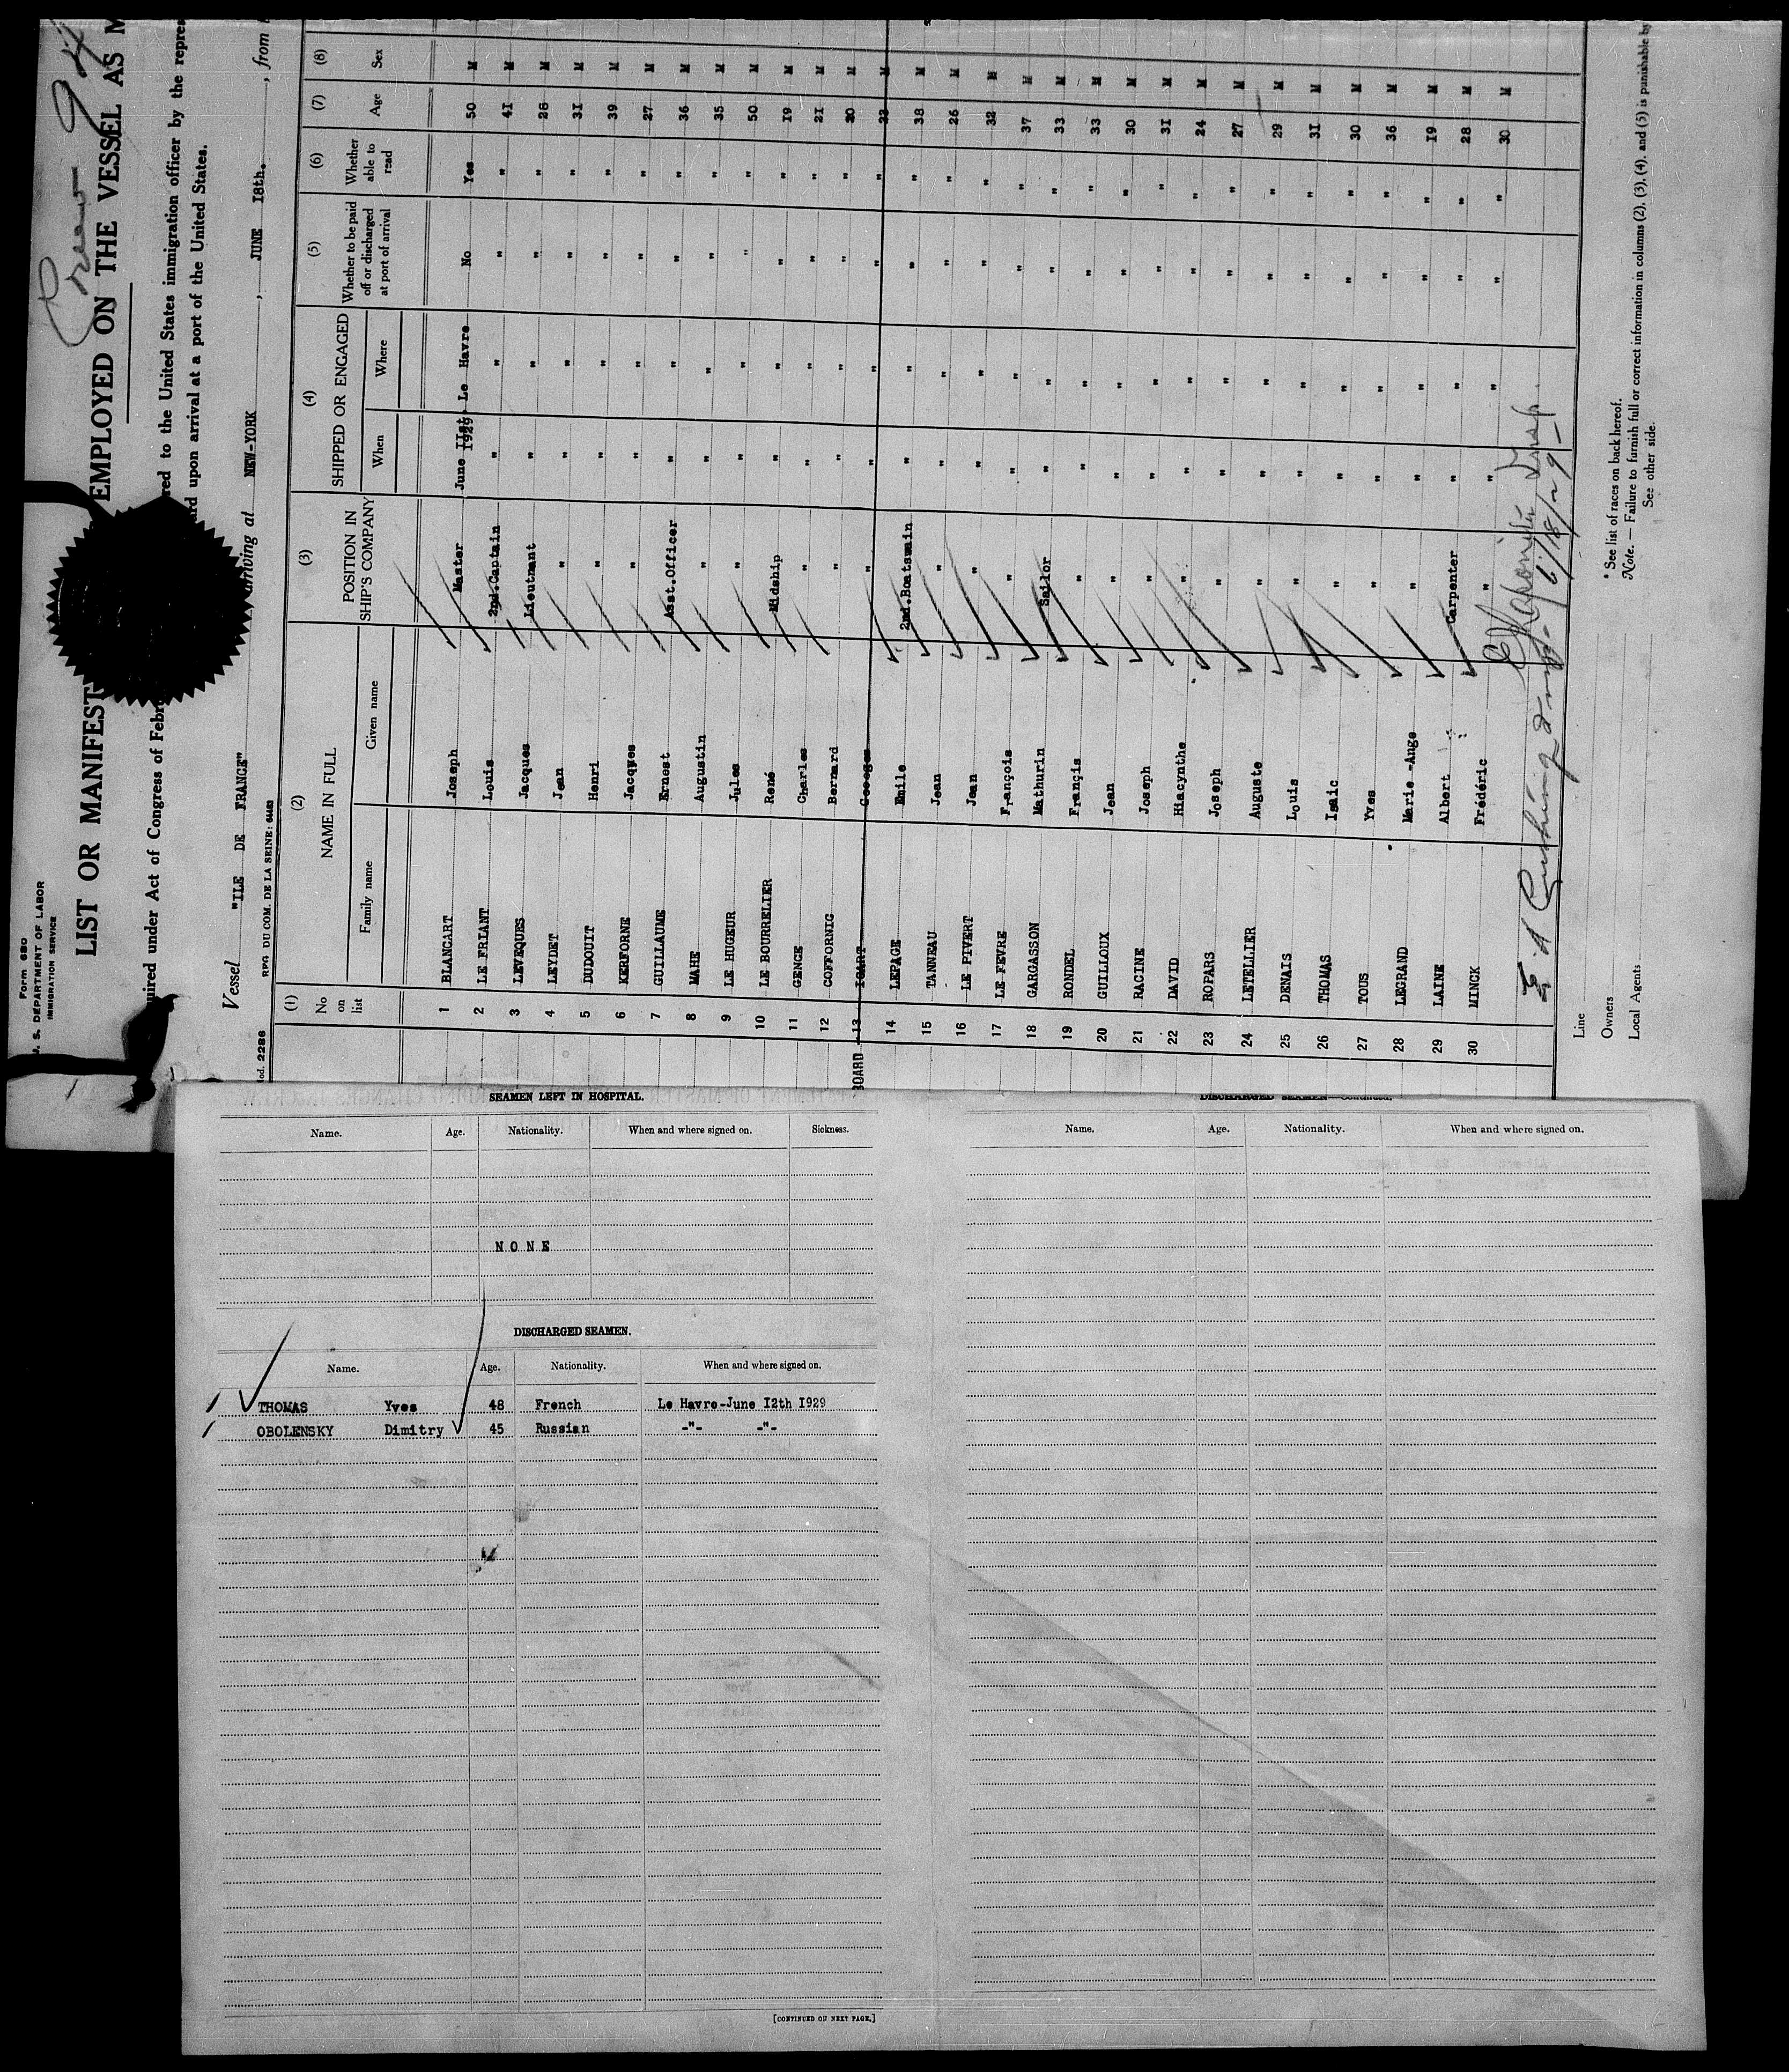 Form 680
U. S. DEPARTMENT OF LABOR
IMMIGRATION SERVICE
Crew 94
LIST OR MANIFEST EMPLOYED ON THE VESSEL AS M
uired under Act of Congress of Febr red to the United States immigration officer by the repres
ard upon arrival at a port of the United States.
Vessel "ILE DE FRANCE" arriving at NEW-YORK , JUNE 18th. , from
od. 2286 RFG DU COM. DE LA SEINE:
(1) (2) (3) (4) (5) (6) (7) (8)
No on list NAME IN FULL POSITION IN SHIP'S COMPANY SHIPPED OR ENGAGED Whether to be paid off or discharged at port of arrival Whether able to read Age Sex
Family name Given name When Where
1 BLANCART Joseph Master June IIst. 1929 Le Havre No Yes 50 M
2 LE FRIANT Louis 2nd.Captain " " " " 41 M
3 LEVEQUES Jacques Lieutnant " " " " 28 M
4 LEYDET Jean " " " " " 31 M
5 DUDOUIT Henri " " " " " 39 M
6 KERFORNE Jacques " " " " " 27 M
7 GUILLAUME Ernest Asst.Officer " " " " 36 M
8 MAHE Augustin " " " " " 35 M
9 LE HUGEUR Jules " " " " " 50 M
10 LE BOURRELIER René Midship " " " " 19 M
11 GENCE Charles " " " " " 21 M
12 COFFORNIC Bernard " " " " " 20 M
BOARD 13 IGART Georges " " " " " 22 M
14 LEPAGE Emile 2nd.Boatsmain " " " " 38 M
15 TANNEAU Jean " " " " " 26 M
16 LE PIVERT Jean " " " " " 32 M
17 LE FEVRE François " " " " " 37 M
18 GARGASSON Mathurin Sailor " " " " 33 M
19 RONDEL Françis " " " " " 33 M
20 GUILLOUX Jean " " " " " 30 M
21 RACINE Joseph " " " " " 31 M
22 DAVID Hiacynthe " " " " " 24 M
23 ROPARS Joseph " " " " " 27 M
24 LETELLIER Auguste " " " " " 29 M
25 DENAIS Louis " " " " " 31 M
26 THOMAS Isaic " " " " " 30 M
27 TOUS Yves " " " " " 36 M
28 LEGRAND Marie -Ange " " " " " 19 M
29 LAINE Albert Carpenter " " " " 28 M
30 MINCK Frédéric " " " " " 30 M
Insp.
Cushing 6/18/29
Line
Owners
Local Agents
* See list of races on back hereof.
Note. — Failure to furnish full or correct information in columns (2), (3), (4), and (5) is punishable by
See other side.
SEAMEN LEFT IN HOSPITAL.
Name. Age. Nationality. When and where signed on. Sickness.
NONE
DISCHARGED SEAMEN.
Name. Age. Nationality. When and where signed on.
THOMAS Yves 48 French Le Havre-June I2th I929
OBOLENSKY Dimitry 45 Russian -"- -"-
[CONTINUED ON NEXT PAGE.]
DISCHARGED SEAMEN—Continued.
Name. Age. Nationality. When and where signed on.